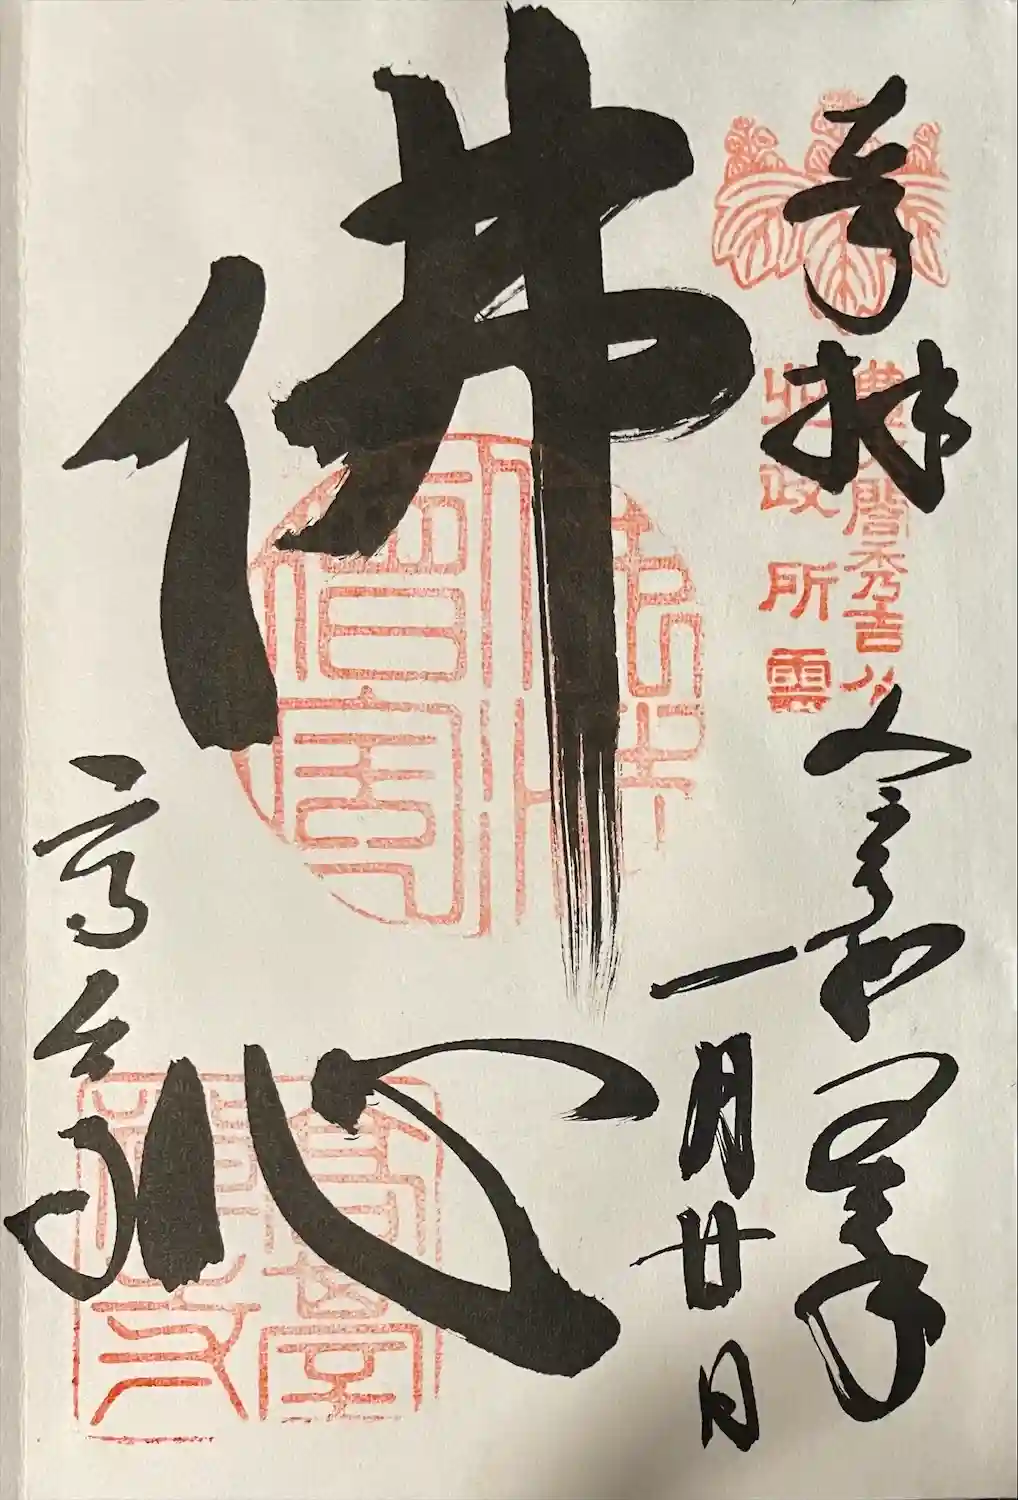 奉拝
豊太閤秀吉公
北政所霊
令和四年
一月廿日
佛心
高台寺